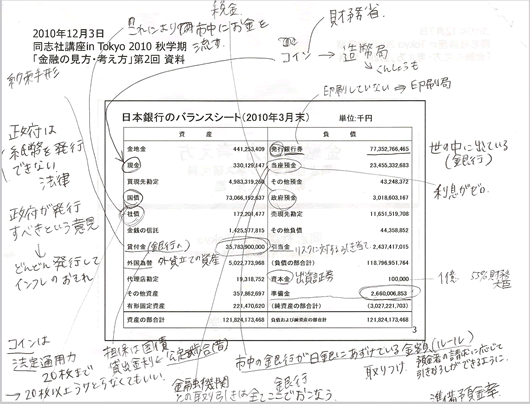 2010年12月3日
同志社講座in Tokyo 2010 秋学期
「金融の見方・考え方」第2回 資料
税金
これにより市中にお金を
流す.
財務省.
コイン → 造幣局
くんしょうも
印刷していない ⇒ 印刷局
約束手形
政府は
紙幣を発行
できない
法律
政府が発行
すべきという意見
↓
どんどん発行して
インフレのおそれ
日本銀行のバランスシート(2010年3月末)
単位:千円
資 産
負 債
金地金 441,253,409 発行銀行券 77,352,766,465
現金 330,129,147 当座預金 23,455,332,683
買現先勘定 4,983,319,288 その他預金 43,248,372
国債 73,066,192,637 政府預金 3,018,603,167
社債 172,201,477 売現先勘定 11,651,519,708
金銭の信託 1,425,577,815 その他負債 44,358,852
貸付金 (銀行へ) 35,783,900,000 引当金 リスクに対する引き当て. 2,437,417,015
外国為替 外貨立ての資産 5,022,773,968 (負債の部合計) 118,796,951,764
代理店勘定 19,318,752 資本金 出資証券 100,000
その他資産 357,862,697 準備金 2,660,006,853
有形固定資産 221,470,620 (純資産の部合計) (3,027,221,703)
資産の部合計 121,824,173,468 負債および純資産の部合計 121,824,173,468
3
世の中に出ている
(銀行)
利息がゼロ.
1億. 55%財務
大臣
コインは
法定通用力
20枚まで
→ 20枚以上うけとらなくてもいい.
担保は国債
貸出金利 (公定歩合)
金融機関
との取り引きは全てここでおこなう.
市中の金銀行が日銀にあずけている金額 (ルール)
銀行
取りつけ.
預金者の請求に応じて
引き出しができるように.
準備預金率.